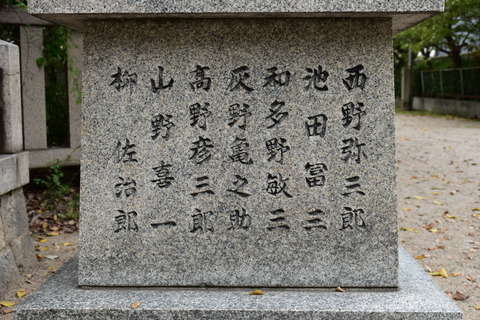 西野弥三郎
池田冨三
和多野敏三
灰野亀之助
高野彦三郎
山野喜一
柳佐治郎